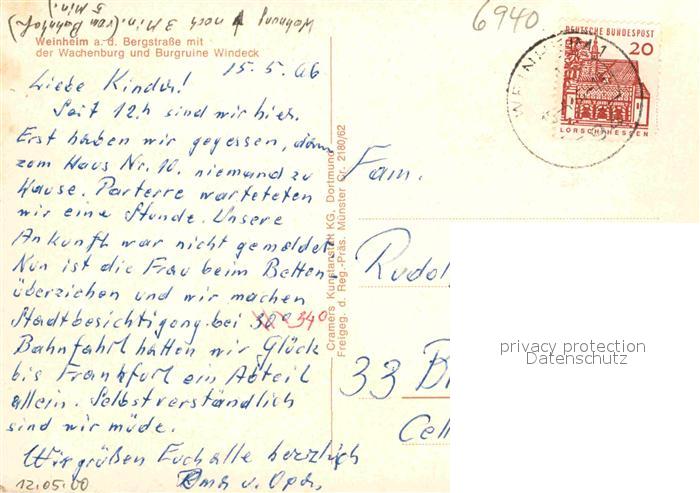 6940
Wohnung noch 3 Min. (vom Bahnhof
5 Min.)
Weinheim a. d. Bergstraße mit
der Wachenburg und Burgruine Windeck
15. 5. 66
Liebe Kinder!
Seit 12h sind wir hier.
Erst haben wir gegessen, dann
zum Haus Nr. 10. niemand zu
Hause. Parterre warteteten
wir eine Stunde. Unsere
Ankunft war nicht gemeldet.
Nun ist die Frau beim Betten
überziehen und wir machen
Stadtbesichtigung bei 34°
Bahnfahrt hatten wir Glück
bis Frankfurt ein Abteil
allein. Selbstverständlich
sind wir müde.
Wir grüßen Euch alle herzlich
Oma u. Opa.
12.05.00
Cramers Kunstanstalt KG, Dortmund
Freigeg. d. Reg.-Präs. Münster Gr. 2180/62
DEUTSCHE BUNDESPOST
20
LORSCH/HESSEN
WEINHEIM
Fam.
Rudol
33 B
Cell
privacy protection
Datenschutz